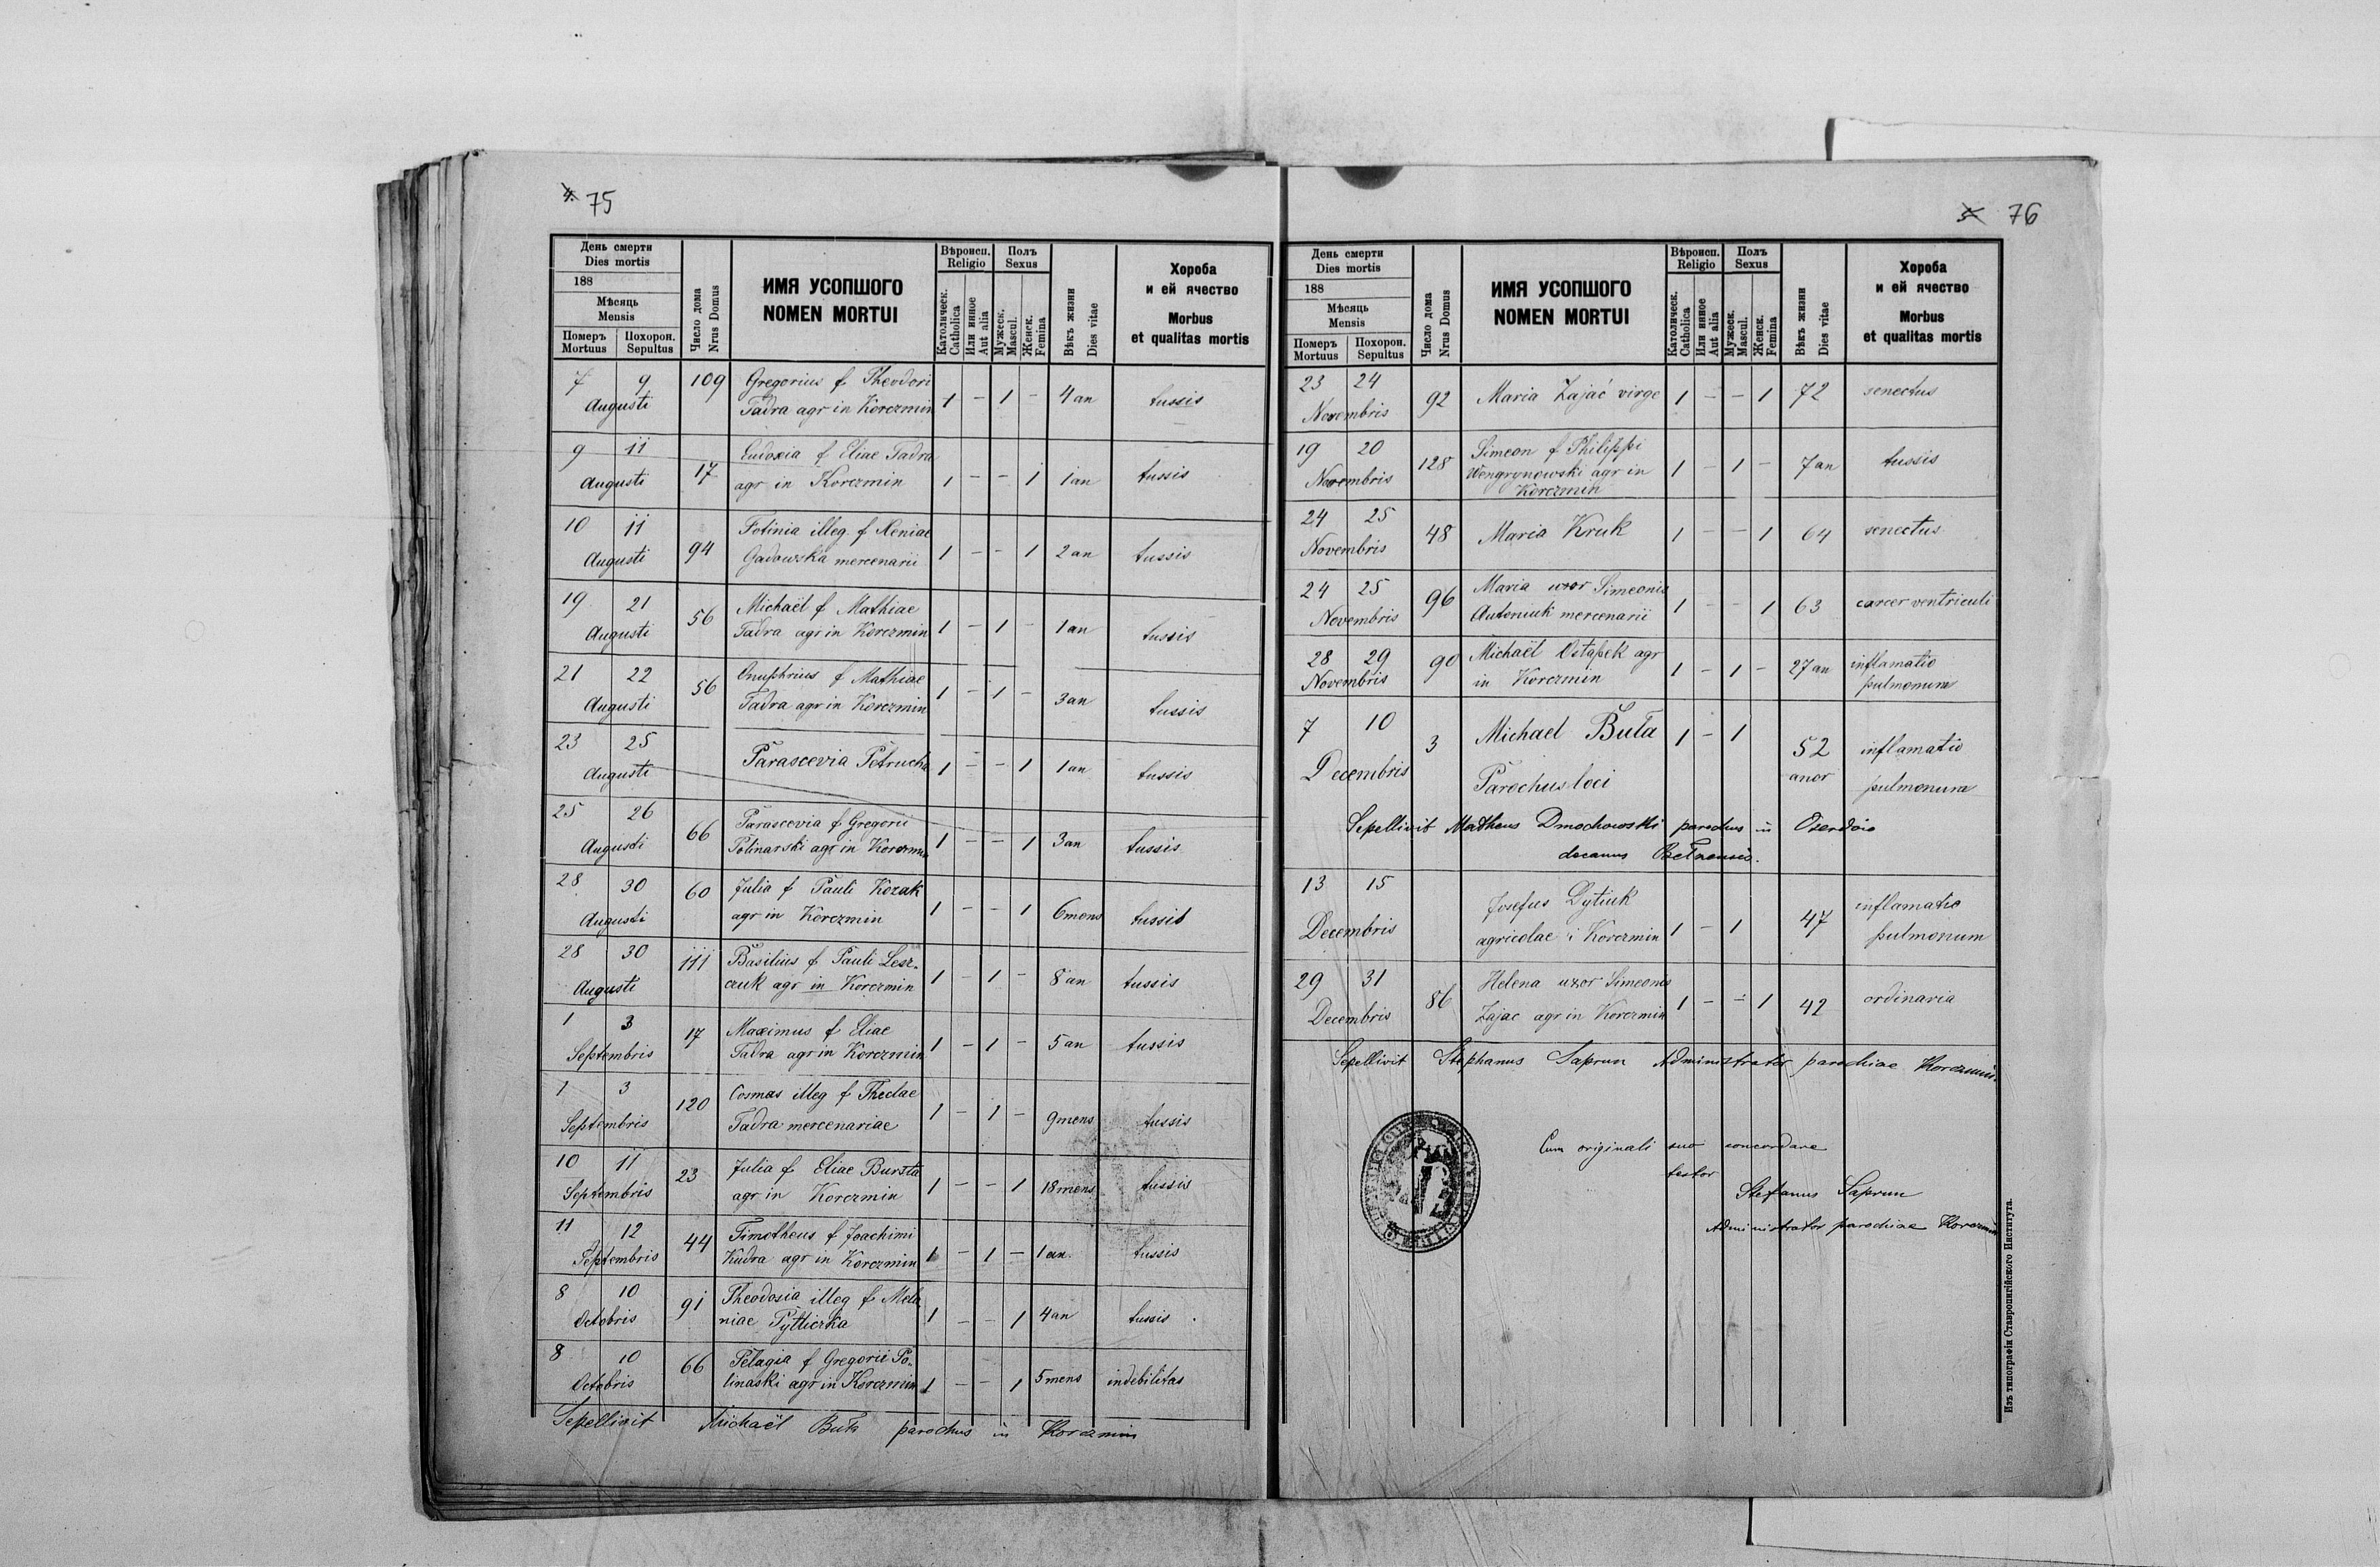 4. 75
День смерти
Dies mortis
188
Мѣсяць
Mensis
Померъ Mortuus
Похорон. Sepultus
Число дома
Nrus Domus
ИМЯ УСОПШОГО
NOMEN MORTUI
Вѣроисп.
Religio
Католическ.
Catholica
Или инное
Aut alia
Полъ
Sexus
Мужеск.
Mascul.
Женск.
Femina
Вѣкъ жизни
Dies vitae
Хороба
и ей ячество
Morbus
et qualitas mortis
7 9 109 Gregorius f Theodori
Augusti Tadra agr in Korczmin 1 - 1 - 4 an tussis
9 11 Eudoxia f Eliae Tadra
Augusti 17 agr in Korczmin 1 - - 1 1 an tussis
10 11 Fotinia illeg. f Xeniae
Augusti 94 Gadowska mercenarii 1 - - 1 2 an tussis
19 21 56 Michaël f Mathiae
Augusti Tadra agr in Korczmin 1 - 1 - 1 an tussis
21 22 56 Onuphrius f Mathiae
Augusti Tadra agr in Korczmin 1 - 1 - 3 an tussis
23 25 Parascevia Petrucha
Augusti 1 - - 1 1 an tussis
25 26 66 Parascevia f Gregorii
Augusti Polinarski agr in Korczmin 1 - - 1 3 an tussis
28 30 60 Julia f Pauli Kozak
Augusti agr in Korczmin 1 - - 1 6 mens tussis
28 30 111 Basilius f Pauli Lesz-
Augusti czuk agr in Korczmin 1 - 1 - 8 an tussis
1 3 17 Maximus f Eliae
Septembris Tadra agr in Korczmin 1 - 1 - 5 an tussis
1 3 120 Cosmas illeg f Theclae
Septembris Tadra mercenariae 1 - 1 - 9 mens tussis
10 11 23 Julia f Eliae Bursta
Septembris agr in Korczmin 1 - - 1 18 mens tussis
11 12 44 Timotheus f Joachimi
Septembris Kudra agr in Korczmin 1 - 1 - 1 an tussis
8 10 91 Theodosia illeg f Mela
Octobris niae Pytliczka 1 - - 1 4 an tussis
8 10 66 Pelagia f Gregorii Po-
Octobris linaski agr in Korczmin 1 - - 1 5 mens indebilitas
Sepellivit Michaël Buta parochus in Korczmin
5 76
День смерти
Dies mortis
188
Мѣсяць
Mensis
Померъ Mortuus
Похорон. Sepultus
Число дома
Nrus Domus
ИМЯ УСОПШОГО
NOMEN MORTUI
Вѣроисп.
Religio
Католическ.
Catholica
Или инное
Aut alia
Полъ
Sexus
Мужеск.
Mascul.
Женск.
Femina
Вѣкъ жизни
Dies vitae
Хороба
и ей ячество
Morbus
et qualitas mortis
23 24 92 Maria Zajać virgo 1 - - 1 72 senectus
Novembris
19 20 128 Simeon f Philippi
Novembris Wengrynowski agr in 1 - 1 - 7 an tussis
Korczmin
24 25 48 Maria Kruk 1 - - 1 64 senectus
Novembris
24 25 96 Maria uxor Simeonis
Novembris Antoniuk mercenarii 1 - - 1 63 carcer ventriculi
28 29 90 Michaël Ostapek agr 1 - 1 - 27 an inflamatio
Novembris in Korczmin pulmonum
7 10 3 Michael Buta 1 - 1 52 inflamatio
Decembris Parochus loci anor pulmonum
Sepellivit Matheus Dmochowski parochus in
decanus Belzensis.
13 15 Josefus Dytiuk inflamatio
Decembris agricolae i Korczmin 1 - 1 47 pulmonum
29 31 86 Helena uxor Simeonis
Decembris Zajac agr in Korczmin 1 - - 1 42 ordinaria
Sepellivit Stephanus Saprun Administrator parochiae Korczmin.
Cum originali suo concordare
testor
Stefanus Saprun
Administrator parochiae Korczmin
Изъ типографіи Ставропигійского Института.